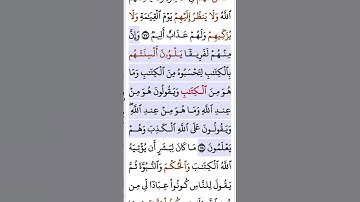 ٱللَّهُ وَلَا يَنظُرُ إِلَيْهِمْ يَوْمَ ٱلْقِيَٰمَةِ وَلَا
يُزَكِّيهِمْ وَلَهُمْ عَذَابٌ أَلِيمٌ ۝ وَإِنَّ
مِنْهُمْ لَفَرِيقًا يَلْوُۥنَ أَلْسِنَتَهُم
بِٱلْكِتَٰبِ لِتَحْسَبُوهُ مِنَ ٱلْكِتَٰبِ وَمَا
هُوَ مِنَ ٱلْكِتَٰبِ وَيَقُولُونَ هُوَ مِنْ
عِندِ ٱللَّهِ وَمَا هُوَ مِنْ عِندِ ٱللَّهِ
وَيَقُولُونَ عَلَى ٱللَّهِ ٱلْكَذِبَ وَهُمْ
يَعْلَمُونَ ۝ مَا كَانَ لِبَشَرٍ أَن يُؤْتِيَهُ
ٱللَّهُ ٱلْكِتَٰبَ وَٱلْحُكْمَ وَٱلنُّبُوَّةَ ثُمَّ
يَقُولَ لِلنَّاسِ كُونُوا۟ عِبَادًا لِّى مِن